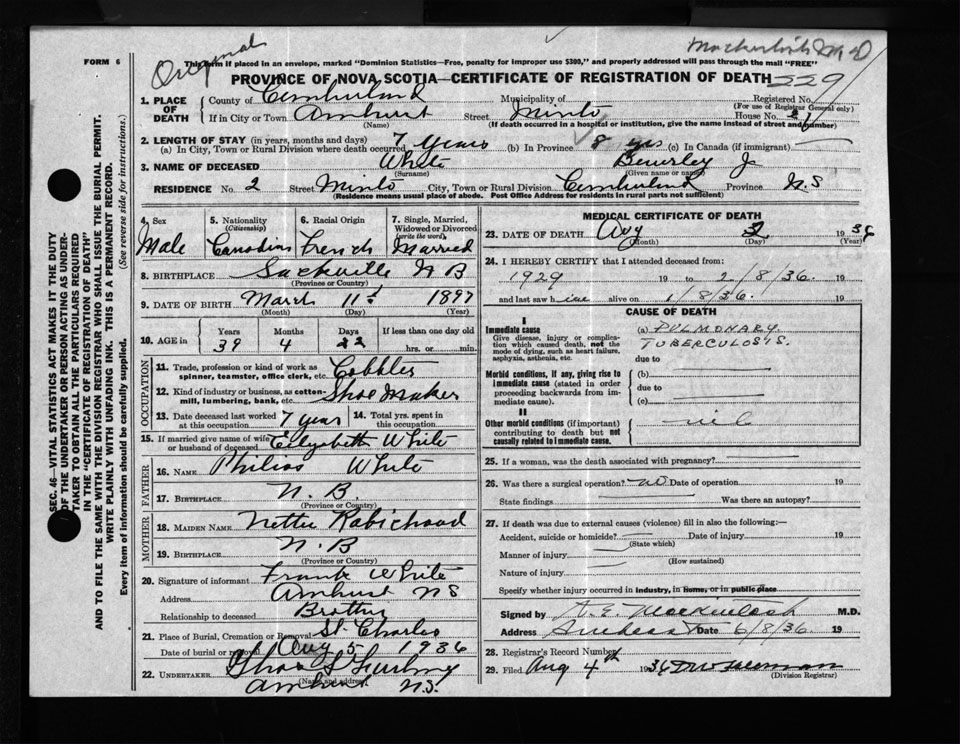 FORM 6
Original
This form if placed in an envelope, marked "Dominion Statistics—Free, penalty for improper use $300," and properly addressed will pass through the mail "FREE"
PROVINCE OF NOVA SCOTIA—CERTIFICATE OF REGISTRATION OF DEATH
229
1. PLACE OF DEATH
County of Cumberland Municipality of Registered No.
(For use of Registrar General only)
If in City or Town Amherst Street Minto House No. 2
(Name) (If death occurred in a hospital or institution, give the name instead of street and number)
2. LENGTH OF STAY (in years, months and days)
(a) In City, Town or Rural Division where death occurred 7 years (b) In Province 8 yrs (c) In Canada (if immigrant)
3. NAME OF DECEASED White Beverley J
(Surname) (Given name or names)
RESIDENCE No. 2 Street Minto City, Town or Rural Division Cumberland Province N.S
(Residence means usual place of abode. Post Office Address for residents in rural parts not sufficient)
4. Sex
Male
5. Nationality
(Citizenship)
Canadian
6. Racial Origin
French
7. Single, Married, Widowed or Divorced
(write the word)
Married
8. BIRTHPLACE Sackville N B
(Province or Country)
9. DATE OF BIRTH March 11 1897
(Month) (Day) (Year)
10. AGE in
Years Months Days If less than one day old
39 4 22 hrs. or min.
OCCUPATION
11. Trade, profession or kind of work as
spinner, teamster, office clerk, etc. Cobbler
12. Kind of industry or business, as cotten-
mill, lumbering, bank, etc. Shoe Maker
13. Date deceased last worked
at this occupation 7 year
14. Total yrs. spent in
this occupation
15. If married give name of wife
or husband of deceased White
FATHER
16. NAME White
17. BIRTHPLACE N. B.
(Province or Country)
MOTHER
18. MAIDEN NAME Nettie
19. BIRTHPLACE N. B
(Province or Country)
20. Signature of informant Frank White
Address Amherst N S
Relationship to deceased Brother
21. Place of Burial, Cremation or Removal St. Charles
Date of burial or removal Aug 5 1936
22. UNDERTAKER
(Name and address)
Amherst N.S.
MEDICAL CERTIFICATE OF DEATH
23. DATE OF DEATH Aug 2 1936
(Month) (Day)
24. I HEREBY CERTIFY that I attended deceased from:
1929 19 to 2/8/36. 19
and last saw him alive on 1/8/36. 19
CAUSE OF DEATH
I
Immediate cause
Give disease, injury or complication which caused death, not the mode of dying, such as heart failure, asphyxia, asthenia, etc.
(a) PULMONARY
TUBERCULOSIS.
due to
Morbid conditions, if any, giving rise to immediate cause (stated in order proceeding backwards from immediate cause).
(b)
due to
(c)
II
Other morbid conditions (if important) contributing to death but not causally related to immediate cause.
nil
25. If a woman, was the death associated with pregnancy?
26. Was there a surgical operation? no Date of operation 19
State findings Was there an autopsy?
27. If death was due to external causes (violence) fill in also the following:—
Accident, suicide or homicide? Date of injury 19
(State which)
Manner of injury
(How sustained)
Nature of injury
Specify whether injury occurred in industry, in home, or in public place
Signed by Mackintosh M.D.
Address Amherst Date 6/8/36 19
28. Registrar's Record Number
29. Filed Aug 4th 1936
(Division Registrar)
SEC. 46—VITAL STATISTICS ACT MAKES IT THE DUTY
OF THE UNDERTAKER OR PERSON ACTING AS UNDER-
TAKER TO OBTAIN ALL THE PARTICULARS REQUIRED
IN THE "CERTIFICATE OF REGISTRATION OF DEATH"
AND TO FILE THE SAME WITH THE DIVISION REGISTRAR WHO SHALL ISSUE THE BURIAL PERMIT.
WRITE PLAINLY WITH UNFADING INK. THIS IS A PERMANENT RECORD.
Every item of information should be carefully supplied. (See reverse side for instructions.)